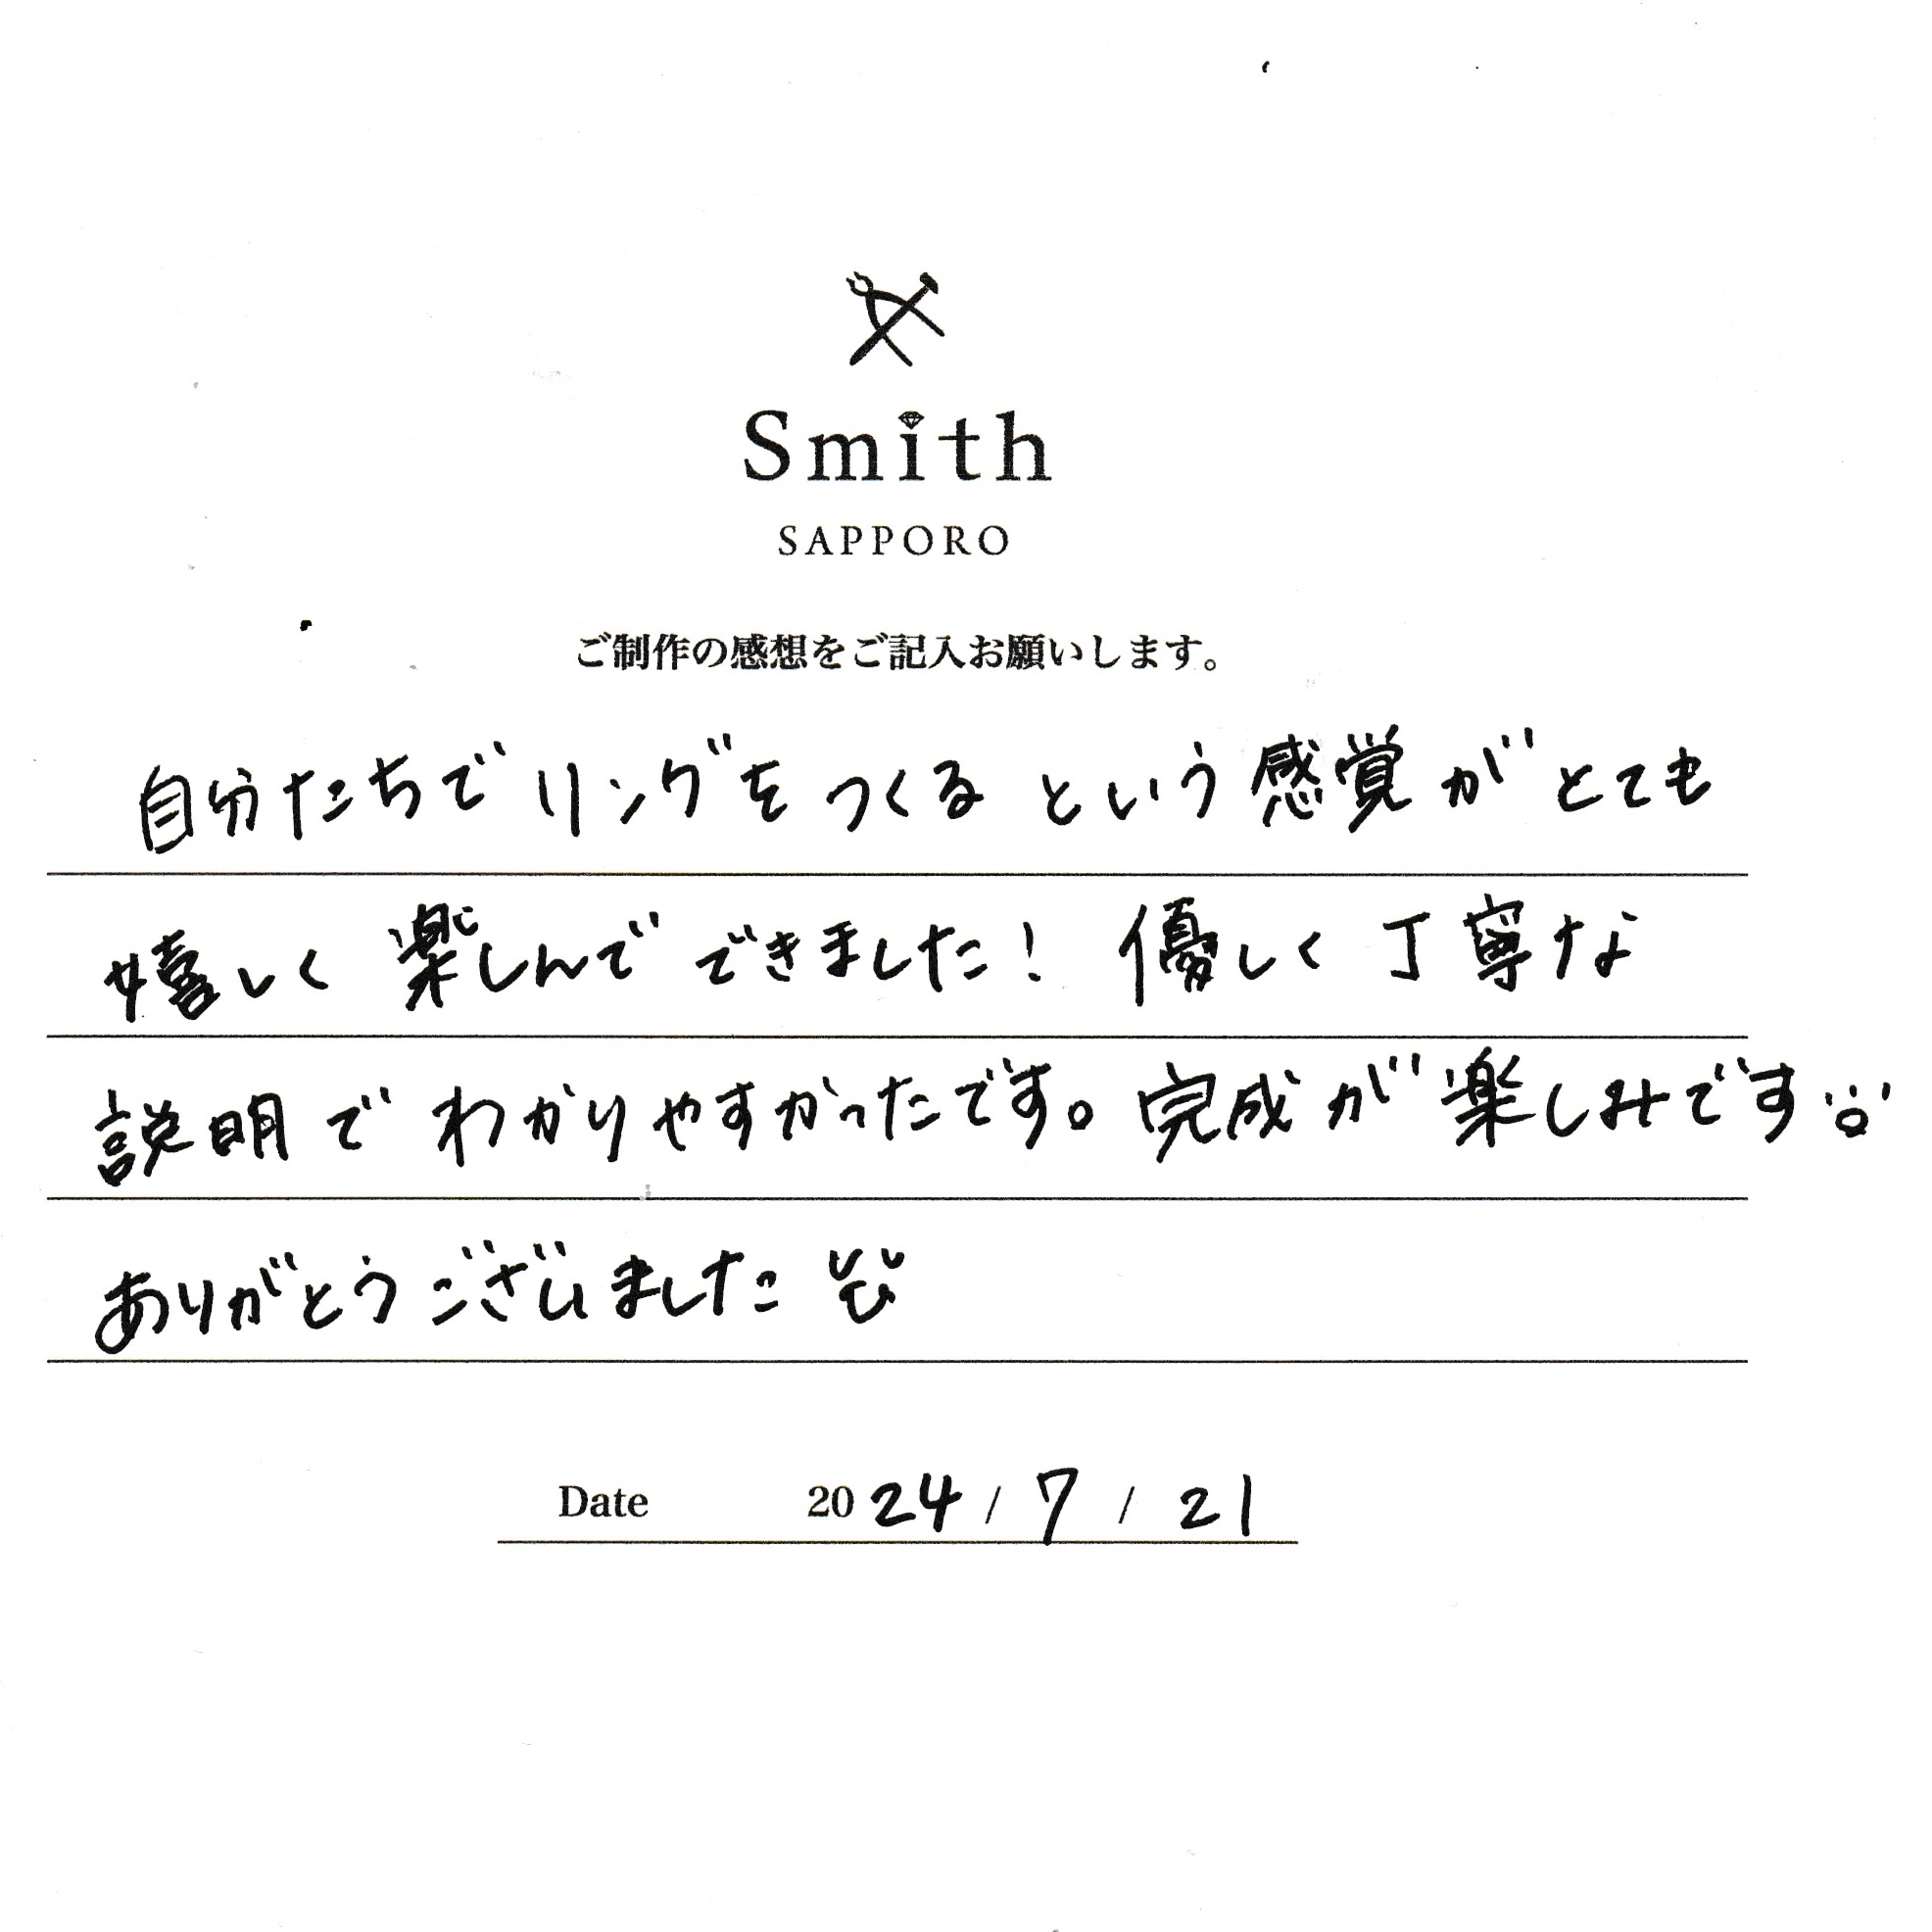 Smith
SAPPORO
ご制作の感想をご記入お願いします。
自分たちでリングをつくるという感覚がとても
嬉しく楽しんでできました! 優しく丁寧な
説明でわかりやすかったです。完成が楽しみです
ありがとうございました
Date 2024 / 7 / 21